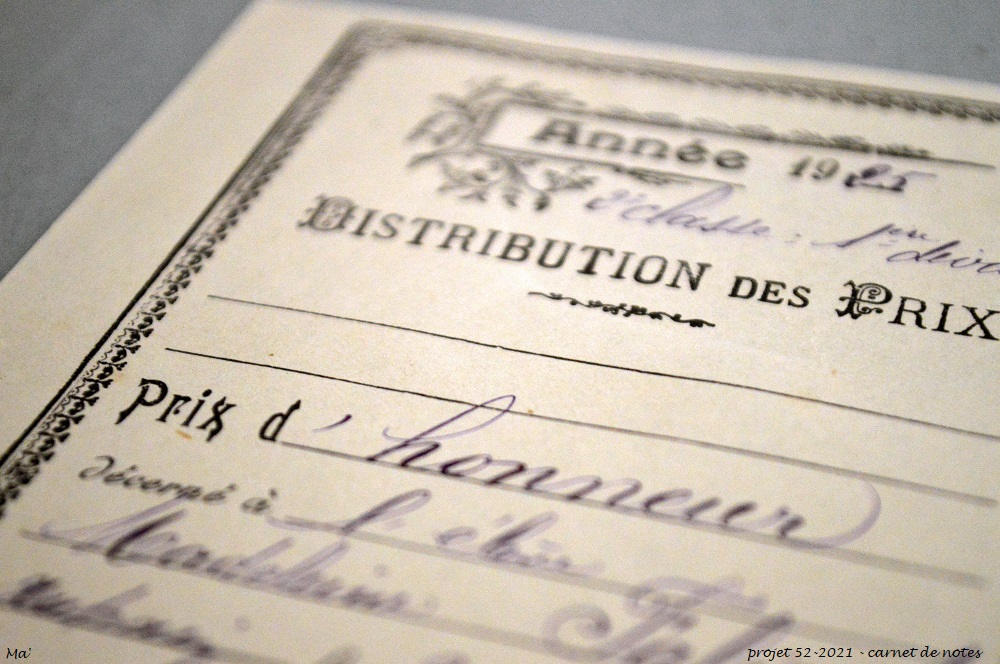 Année 1925
2e classe : 1ere
DISTRIBUTION DES PRIX
Prix d'honneur
décerné à l'élève
Madeleine
Ma'
projet 52-2021 - carnet de notes